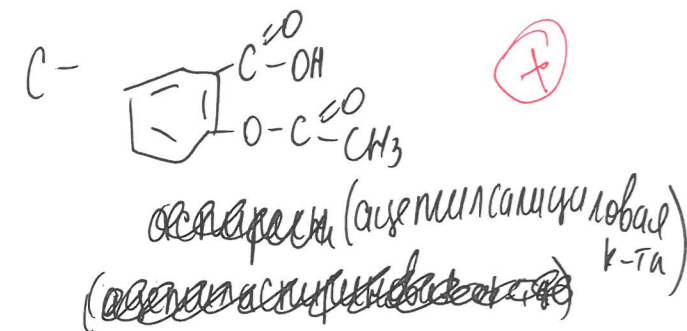 C -
C=O -OH
-O-C=O -CH3
+
аспирин (ацетилсалициловая
к-та)